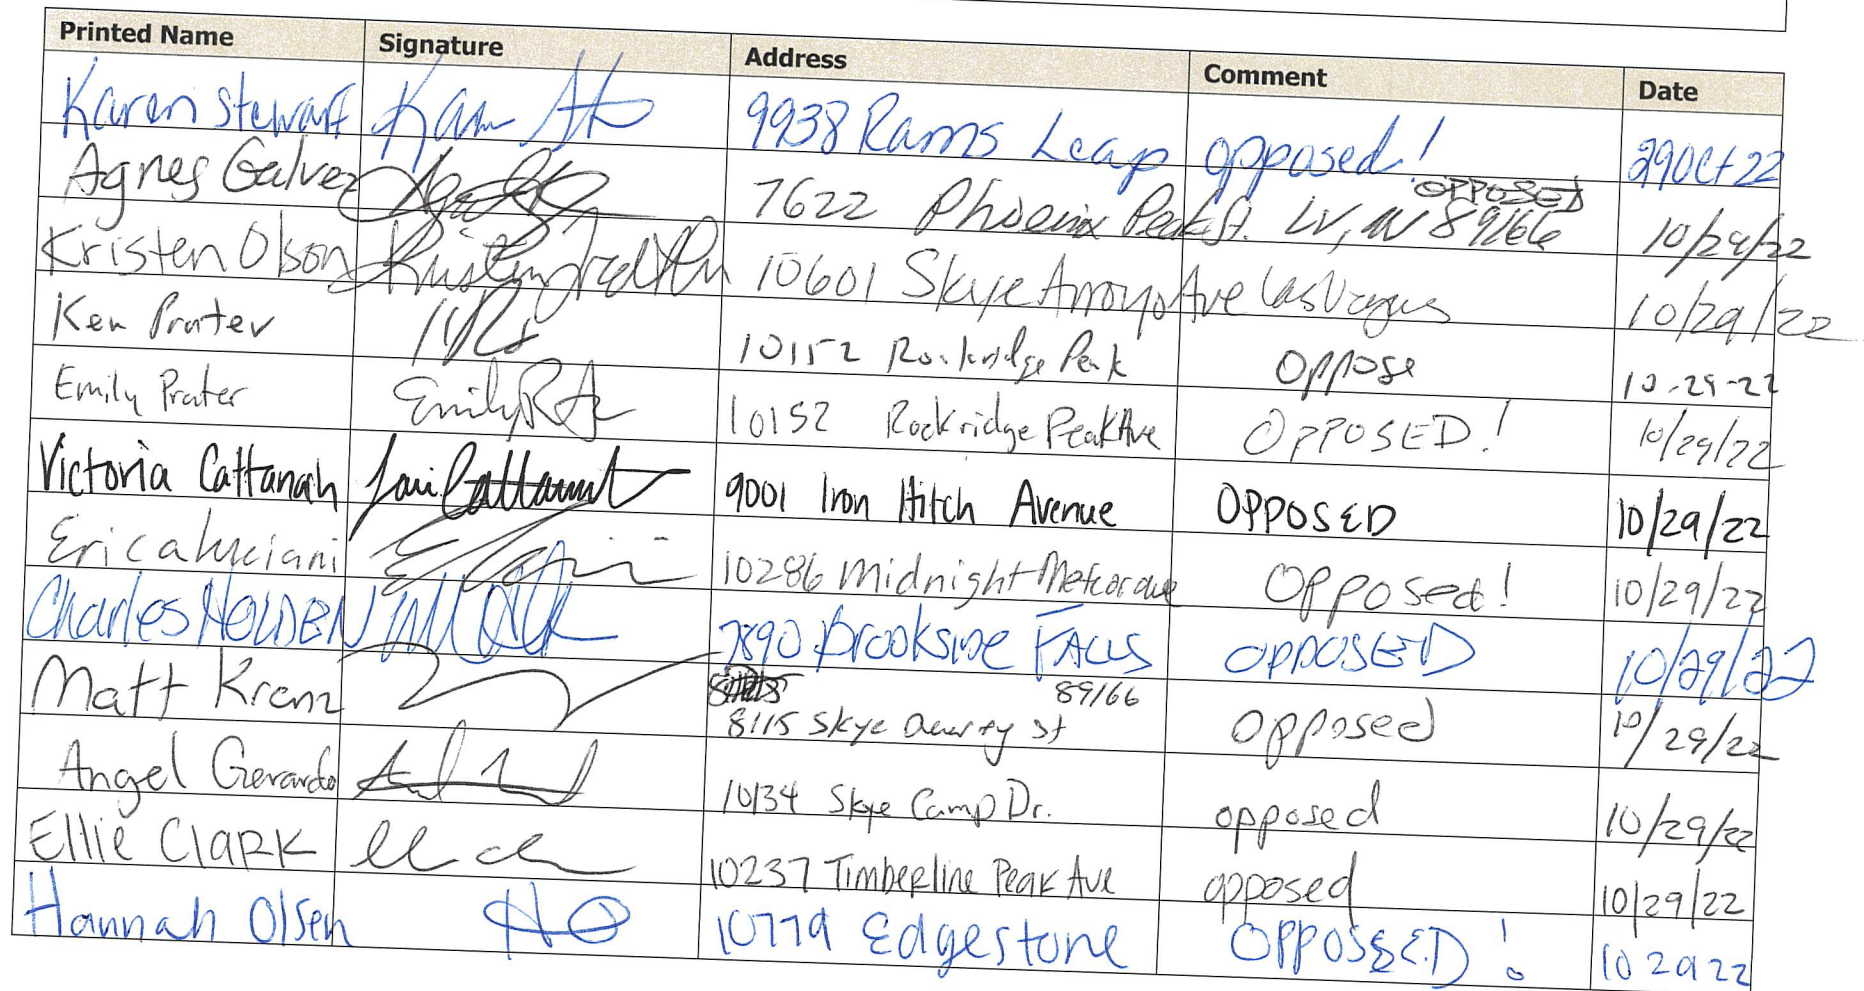 Printed Name Signature Address Comment Date
Karen Stewart 9938 Rams Leap opposed! 29 Oct 22
Agnes Galvez 7622 Phoenix Peak St. LV, NV 89166 OPPOSED 10/29/22
Kristen Olson 10601 Skye Arroyo Ave Las Vegas 10/29/22
Ken Prater 10152 Rockridge Peak Oppose 10-29-22
Emily Prater 10152 Rockridge Peak Ave OPPOSED! 10/29/22
Victoria Cattanah 9001 Iron Hitch Avenue OPPOSED 10/29/22
Erica Luciani 10286 Midnight Meteor ave Opposed! 10/29/22
Charles HOLDEN 7890 Brookside FALLS OPPOSED 10/29/22
Matt Kranz 89166 8115 Skye st opposed 10/29/22
Angel Gerardo 10134 Skye Camp Dr. opposed 10/29/22
Ellie Clark 10237 Timberline Peak Ave opposed 10/29/22
Hannah Olsen HO 10779 Edgestone OPPOSED! 10 29 22